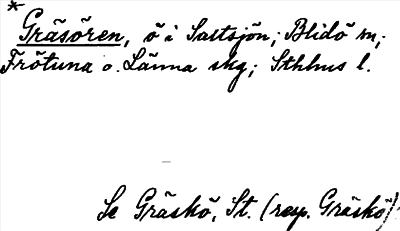 * Gräsören, ö i Saltsjön; Blidö sn,
Frötuna o. Länna skg; Sthlms l.
Se Gräskö, St. (resp. Gräskö)